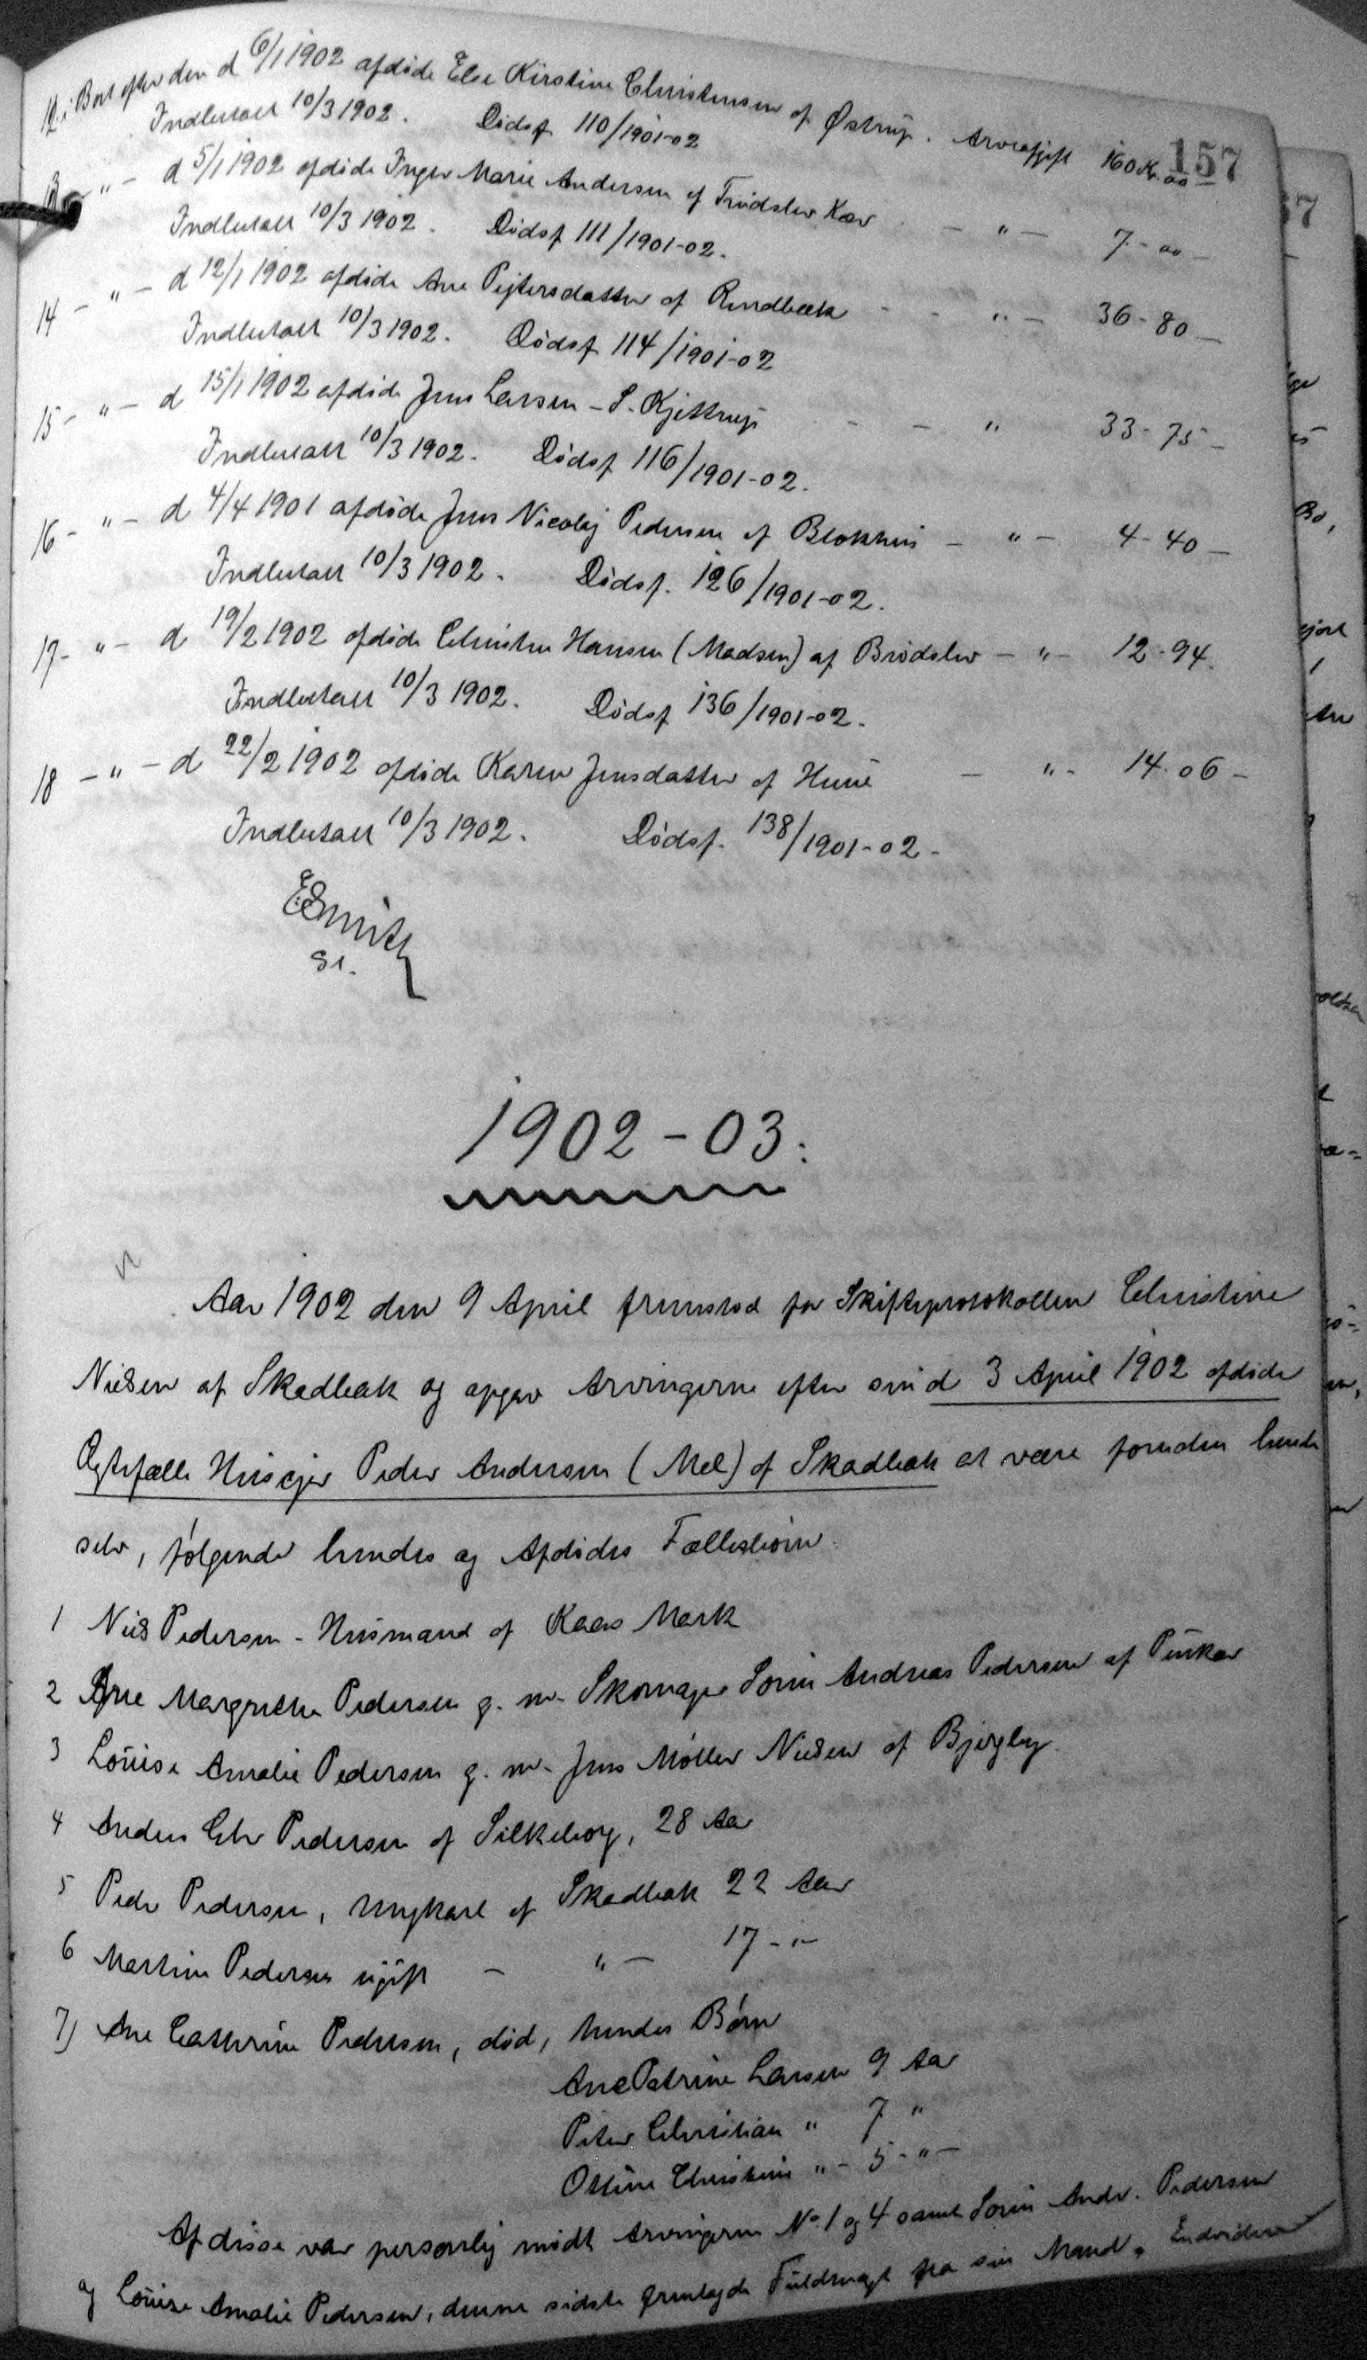 157
12 i Boet efter den d 6/1 1902 afdøde Else Kirstine Christensen af Østrup. Arveafgift 160 Kr. 00
Indbetalt 10/3 1902. Dødsf 110/1901-02
13 - " - d 5/1 1902 afdøde Inger Marie Andersen af Trudslev Kær - " - 7 - 00 -
Indbetalt 10/3 1902. Dødsf 111/1901-02.
14 - " - d 12/1 1902 afdøde Ane Pejtersdatter af Rendbæk - - " - 36 - 80 -
Indbetalt 10/3 1902. Dødsf 114/1901-02
15 - " - d 15/1 1902 afdøde Jens Larsen - S. Kjettrup - - " 33 - 75 -
Indbetalt 10/3 1902. Dødsf 116/1901-02.
16 - " - d 4/4 1901 afdøde Jens Nicolaj Pedersen af Blokhus - " - 4 - 40 -
Indbetalt 10/3 1902. Dødsf. 126/1901-02.
17 - " - d 19/2 1902 afdøde Christen Hansen (Madsen) af Brødslev - " - 12 - 94.
Indbetalt 10/3 1902. Dødsf 136/1901-02.
18 - " - d 22/2 1902 afdøde Karen Jensdatter af Hune - " - 14. 06 -
Indbetalt 10/3 1902. Dødsf. 138/1901-02 -
ESmith
1902 - 03:
Aar 1902 den 9 April fremstod for Skifteprotokollen Christine
Nielsen af Skadbæk og opgav Arvingerne efter sin d 3 April 1902 afdøde
Ægtefælle Husejer Peder Andersen (Mel) af Skadbæk at være foruden hende
selv, følgende hendes og Afdødes Fællesbørn:
1 Niels Pedersen - Husmand af Kaas Mark
2 Ane Margrethe Pedersen g. m. Skomager Søren Andreas Pedersen af
3 Louise Amalie Pedersen g. m. Jens Møller Nielsen af Bjergby.
4 Anders Chr Pedersen af Silkeborg, 28 Aar
5 Peder Pedersen, Ungkarl af Skadbæk 22 Aar
6 Martine Pedersen ugift - " - 17 - " -
7) Ane Cathrine Pedersen, død, hendes Børn
Ane Petrine Larsen 9 Aar
Peter Christian " 7 "
Ottine Christine " - 5 - " -
Af disse var personlig mødt Arvingerne No. 1 og 4 samt Søren Andr. Pedersen
og Louise Amalie Pedersen, denne sidste fremlagde Fuldmagt fra sin Mand. Endvidere